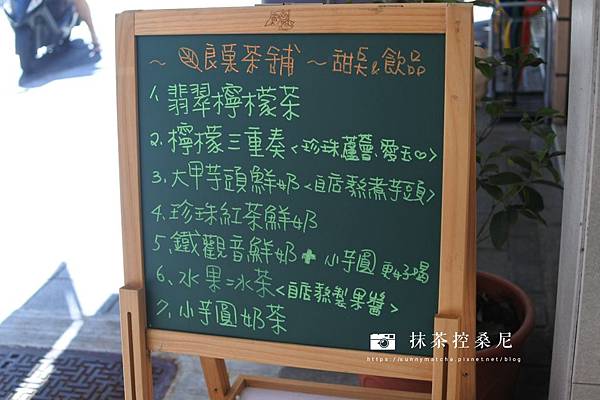 ～良菓茶舖～甜點&飲品
1. 翡翠檸檬茶
2. 檸檬三重奏<珍珠蘆薈.愛玉♡>
3. 大甲芋頭鮮奶<自店熬煮芋頭>
4. 珍珠紅茶鮮奶
5. 鐵觀音鮮奶+小芋圓更好喝
6. 水果=水茶<自店熬製果醬>
7. 小芋圓奶茶
抹茶控桑尼
https://sunnymatcha.pixnet.net/blog